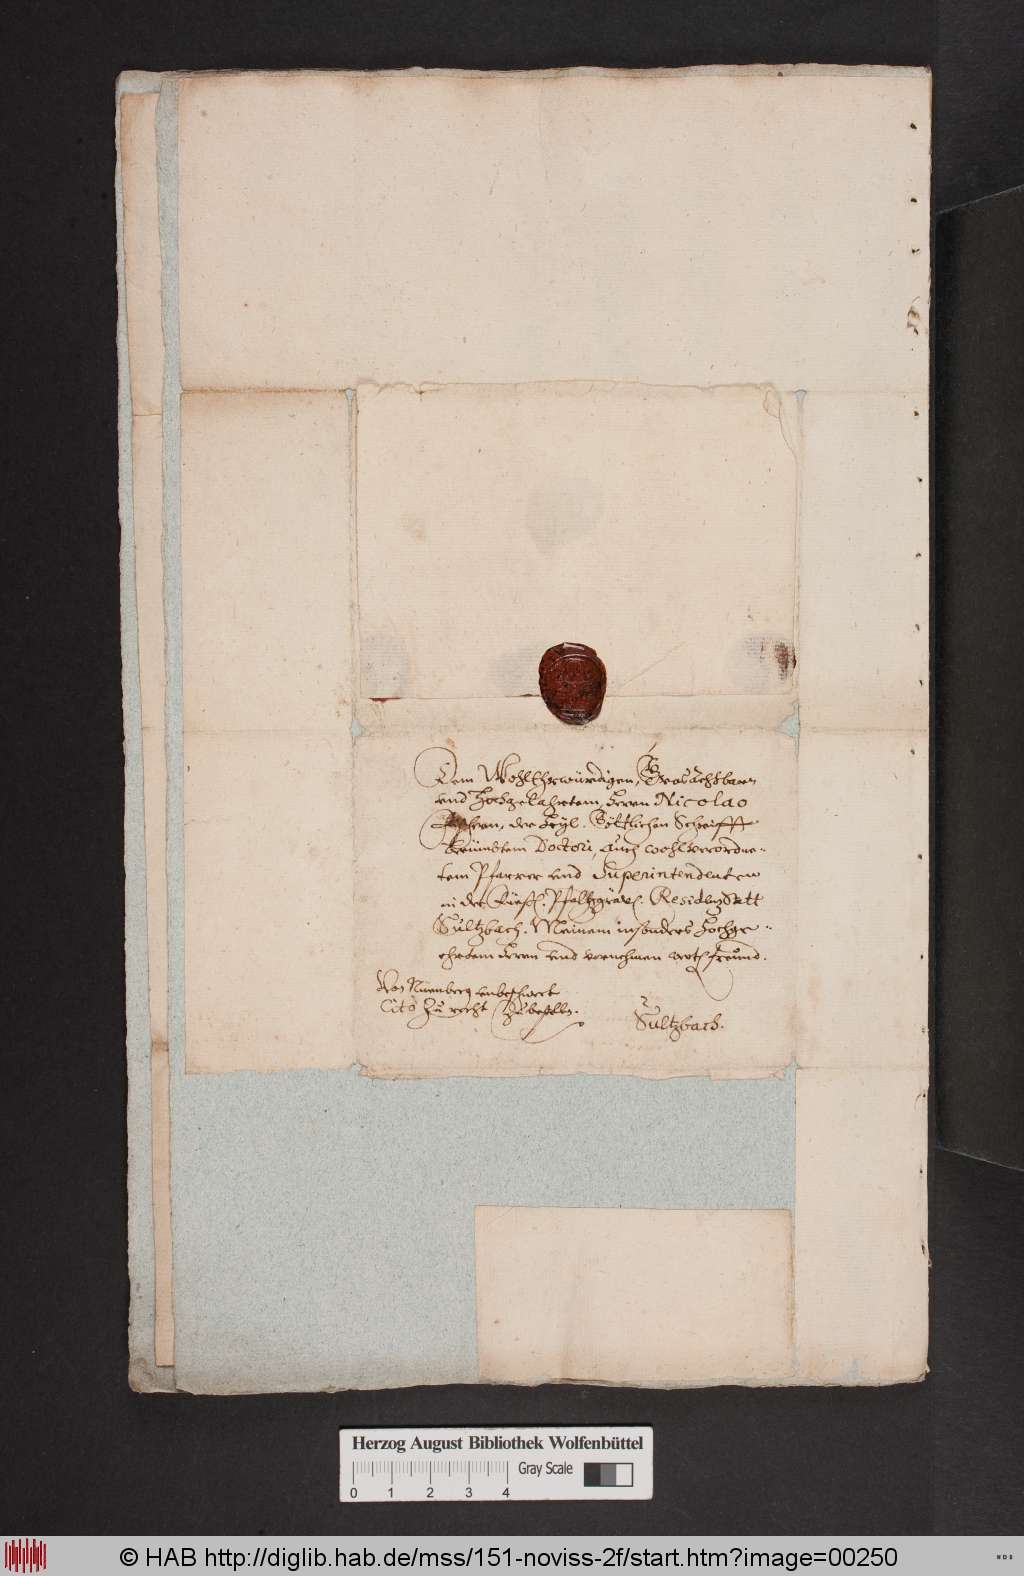 Dem WohlEhrwürdigen, Grosachtbaren
und Hochgelahrtem, Herrn Nicolao
der Heyl. Göttlichen Schrifft
berümbtem Doctori, auch wohlverordne-
tem Pfarrer und Superintendenten
in der Fürstl. Pfaltzgräul. Residentzstatt
Sultzbach. Meinem insonders Hochge-
ehrtem Herrn und vornehmen freund.
Von Nürmberg
Cito Zu recht Zubestelln.
Sultzbach.
Herzog August Bibliothek Wolfenbüttel
Gray Scale
0 1 2 3 4
© HAB http://diglib.hab.de/mss/151-noviss-2f/start.htm?image=00250